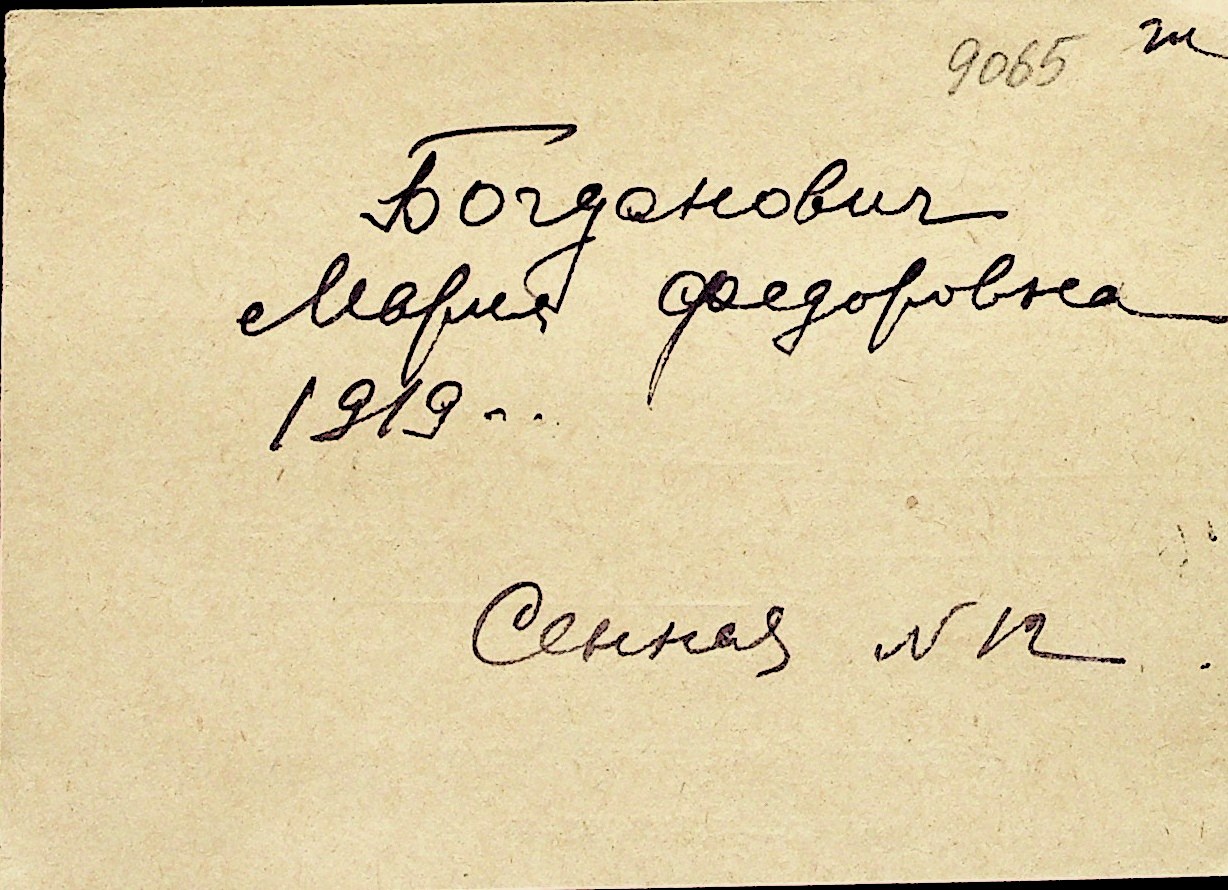 9065
Богданович
Мария Федоровна
1919
Сенная N 12